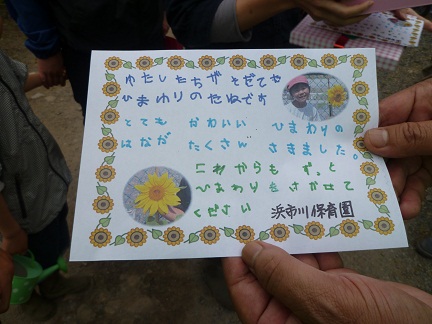 わたしたちが そだてた
ひまわりのたねです
とても かわいい ひまわりの
はなが たくさん さきました。
これからも ずっと
ひまわりをさかせて
ください 浜市川保育園